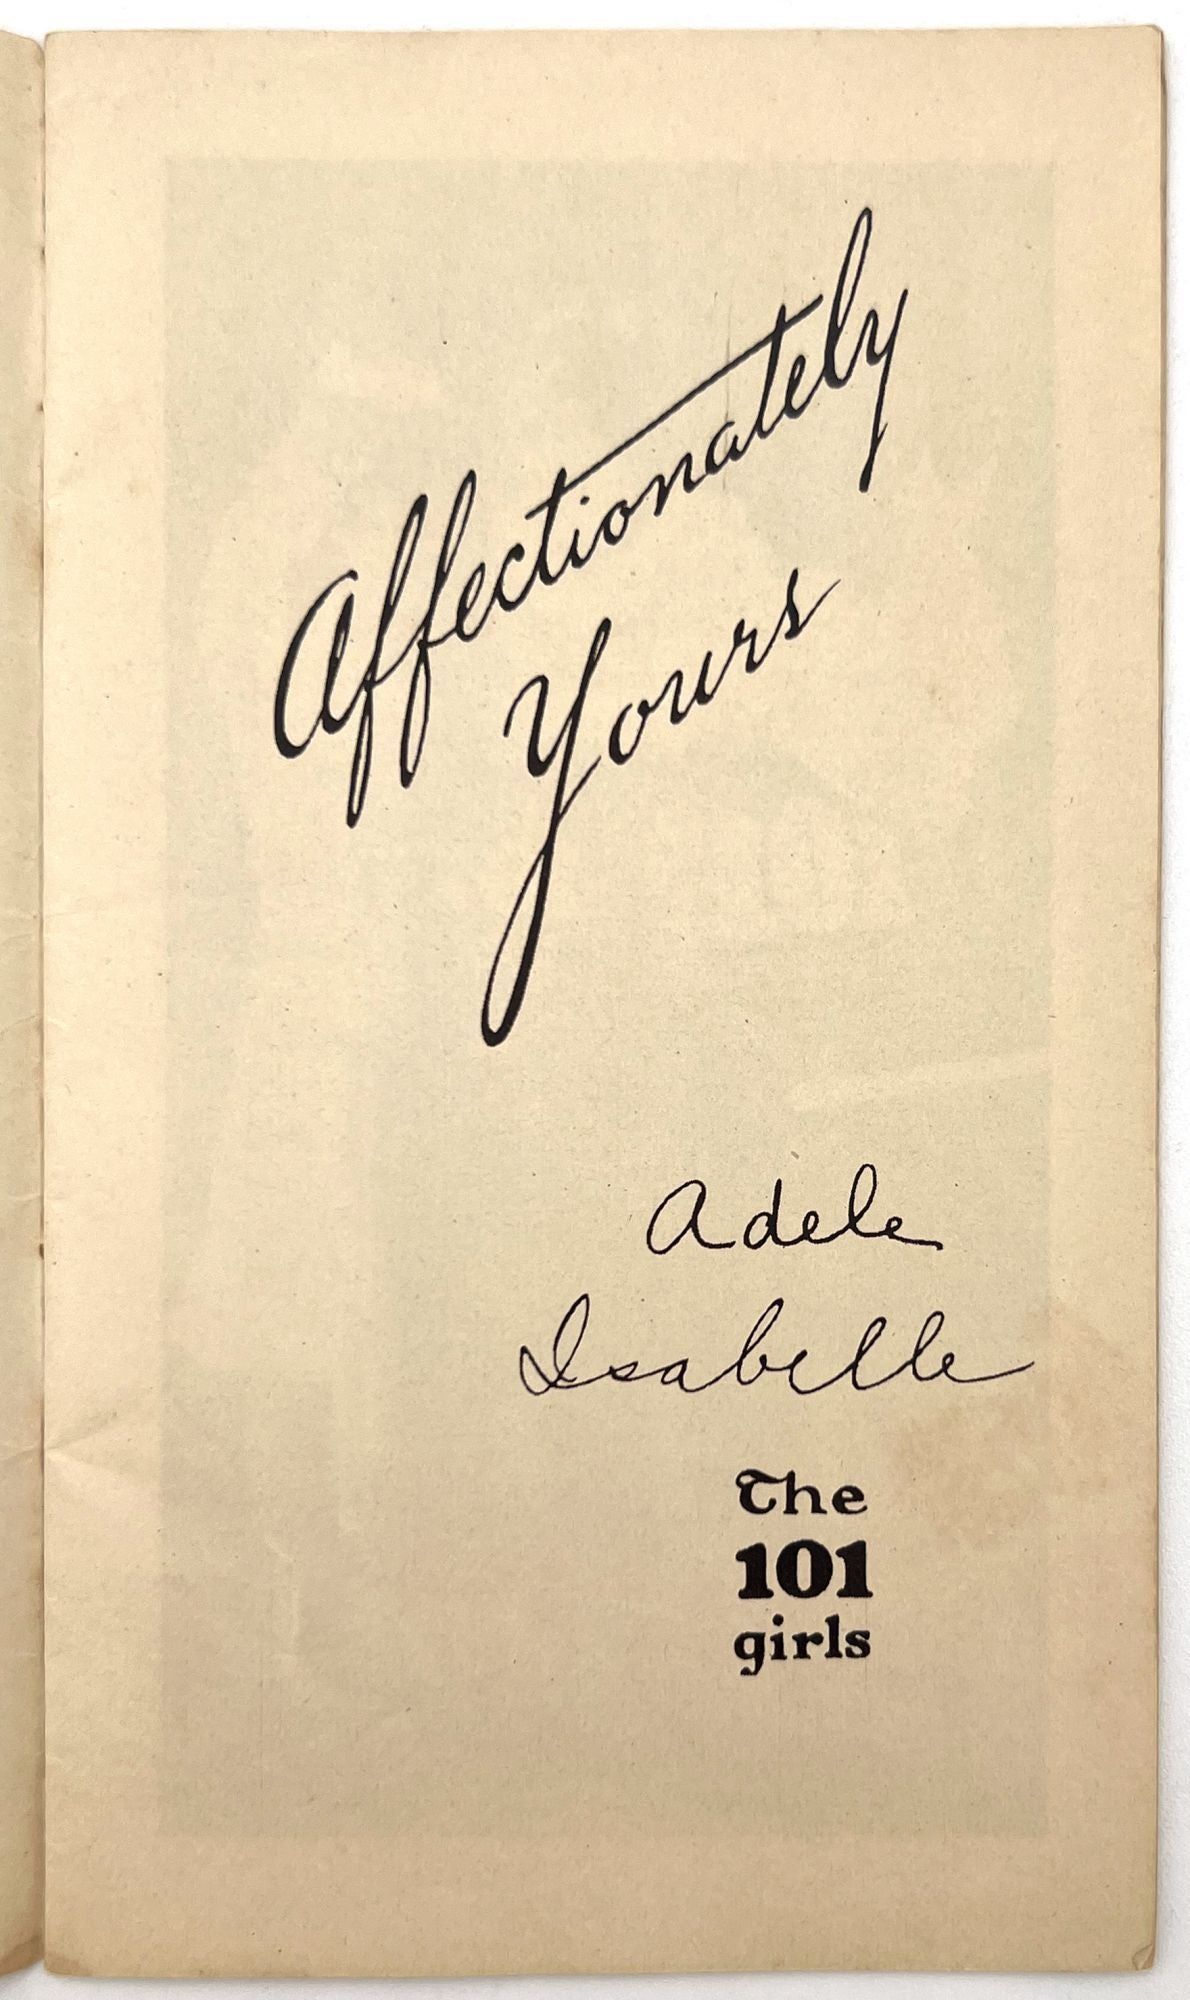 Affectionately
Yours
Adele
Isabelle
The
101
girls